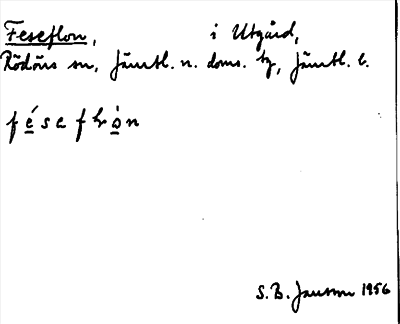 Feseflon, i Utgård,
Rödöns sn, Jämtl. n. doms. tg, Jämtl. l.
f é s e f l ò n
S. B. Jansson 1956